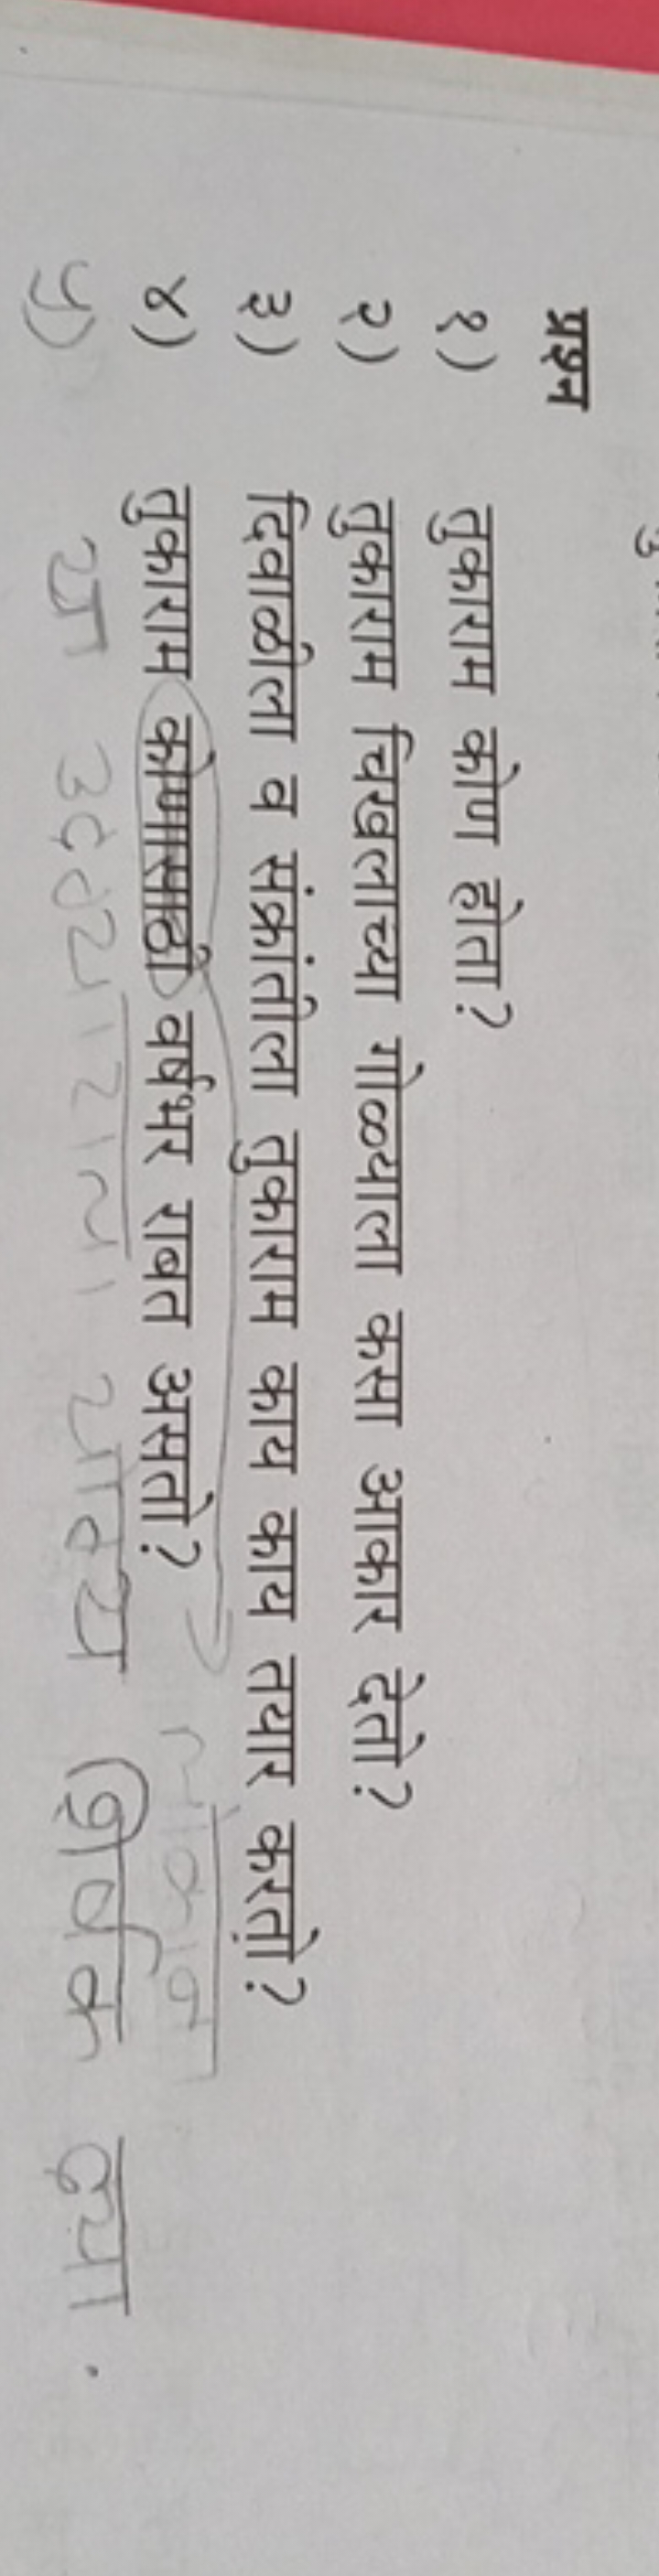 प्रश्न
१) तुकाराम कोण होता?
२) तुकाराम चिखलाच्या गोळ्याला कसा आकार देतो?
३) दिवाळीला व संक्रांतीला तुकाराम काय काय तयार करतो?
४) तुकाराम कोणासाठी वर्षभर राबत असतो?
५) या उताऱ्याला योग्य शिर्षक द्या.